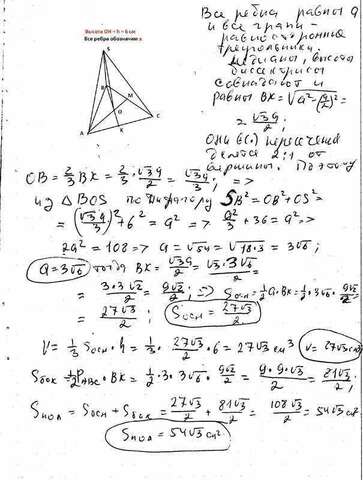 Высота ОН = h = 6 см
Все ребра обозначим a
S
B
M
O
A
K
C
Все ребра равны a
и все грани -
равносторонние
треугольники.
Медианы, высоты
биссектрисы
совпадают и
равны BK = √(a² - (a/2)²) =
= √3a/2;
Они в (·) пересечения
делятся 2:1 от
вершины. Поэтому
OB = 2/3 BK = 2/3 · √3a/2 = √3a/3; =>
из △BOS по Пифагору SB² = OB² + OS² =
= (√3a/3)² + 6² = a² => a²/3 + 36 = a² =>
2a² = 108 => a = √54 = √18·3 = 3√6;
a = 3√6 тогда BK = √3a/2 = √3·3√6/2 =
= 3·3√2/2 = 9√2/2; => Sосн = 1/2 a·BK = 1/2 · 3√6 · 9√2/2
= 27√3/2; Sосн = 27√3/2
V = 1/3 Sосн · h = 1/3 · 27√3/2 · 6 = 27√3 см³ V = 27√3 см³
Sбок = 1/2 PABC · BK = 1/2 · 3·3√6 · 9√2/2 = 9·9√3/2 = 81√3/2;
Sпол = Sосн + Sбок = 27√3/2 + 81√3/2 = 108√3/2 = 54√3 см²
Sпол = 54√3 см²